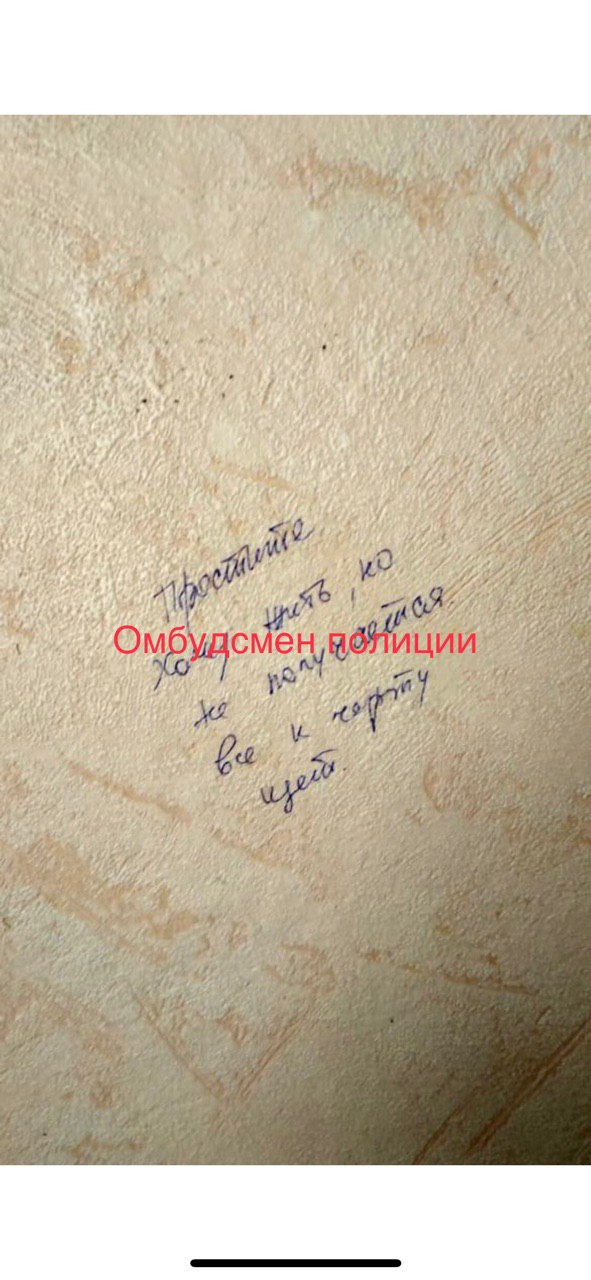 Простите
Хочу жить, но
Омбудсмен полиции
не получается
все к черту
идет.